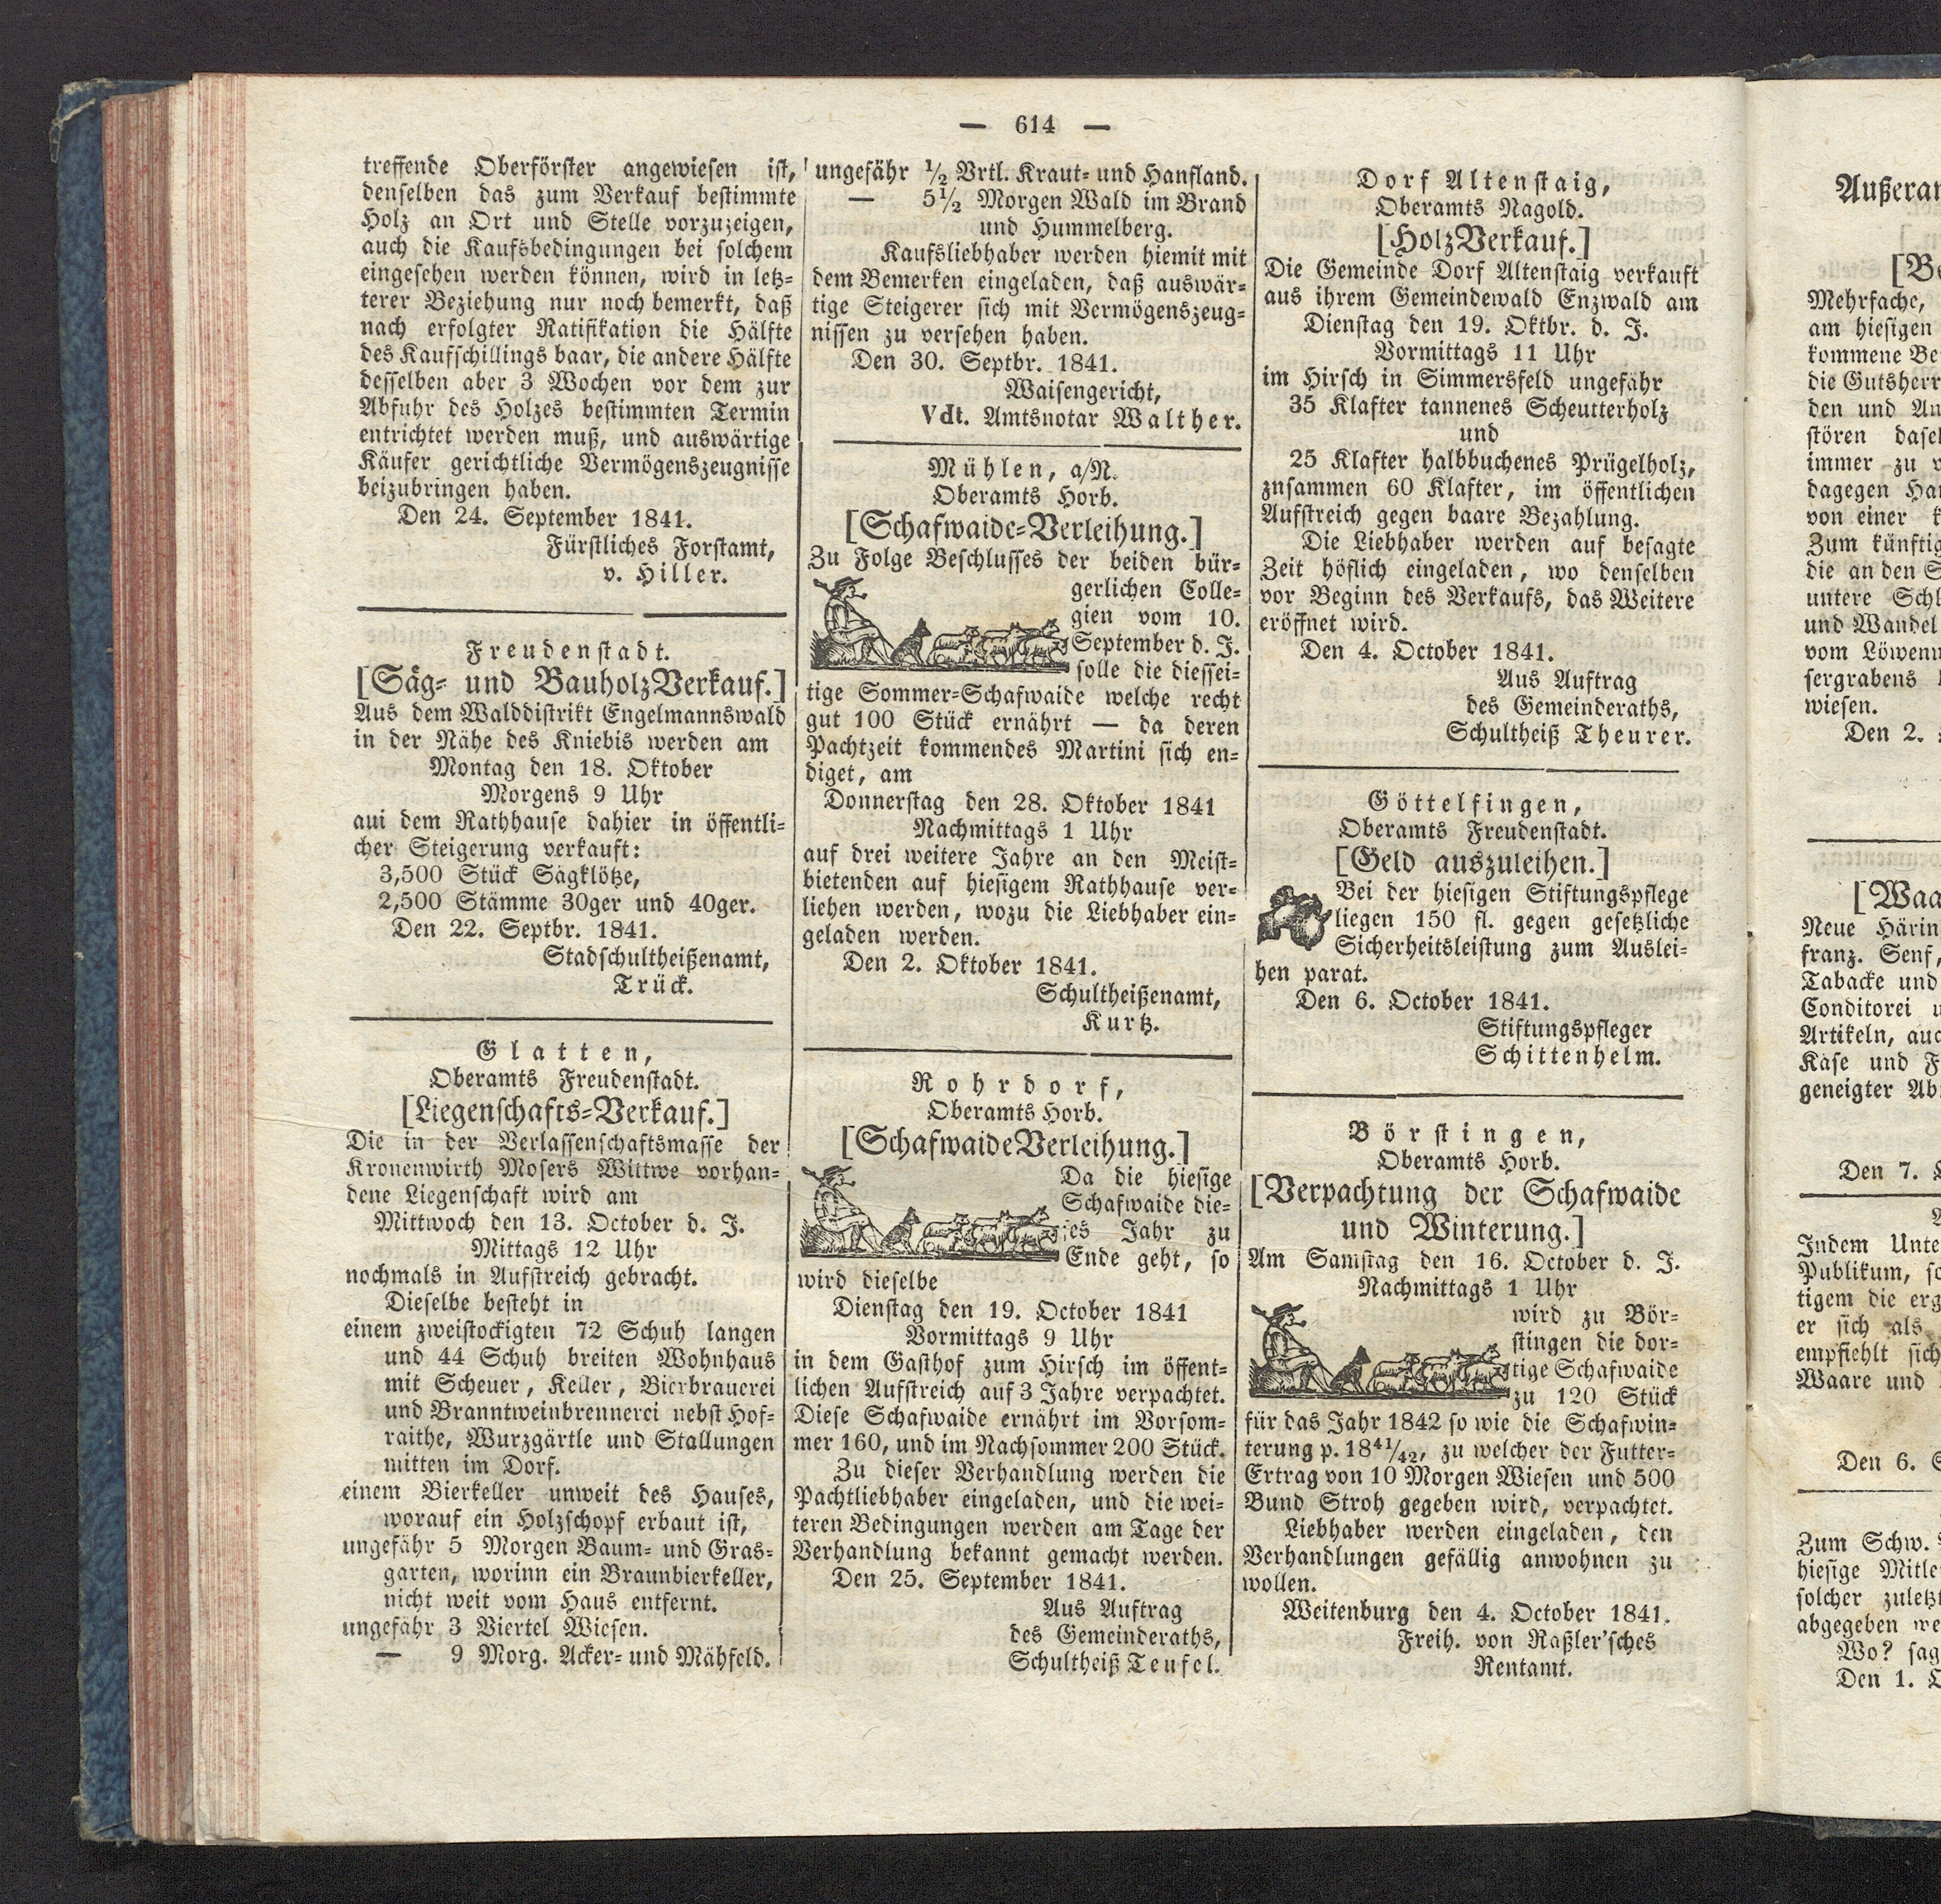 — 614 —
treffende Oberförster angewiesen ist,
denselben das zum Verkauf bestimmte
Holz an Ort und Stelle vorzuzeigen,
auch die Kaufsbedingungen bei solchem
eingesehen werden können, wird in letz-
terer Beziehung nur noch bemerkt, daß
nach erfolgter Ratifikation die Hälfte
des Kaufschillings baar, die andere Hälfte
desselben aber 3 Wochen vor dem zur
Abfuhr des Holzes bestimmten Termin
entrichtet werden muß, und auswärtige
Käufer gerichtliche Vermögenszeugnisse
beizubringen haben.
Den 24. September 1841.
Fürstliches Forstamt,
v. Hiller.
Freudenstadt.
[Säg- und BauholzVerkauf.]
Aus dem Walddistrikt Engelmannswald
in der Nähe des Kniebis werden am
Montag den 18. Oktober
Morgens 9 Uhr
aui dem Rathhause dahier in öffentli-
cher Steigerung verkauft:
3,500 Stück Sägklötze,
2,500 Stämme 30ger und 40ger.
Den 22. Septbr. 1841.
Stadschultheißenamt,
Trück.
Glatten,
Oberamts Freudenstadt.
[Liegenschafts-Verkauf.]
Die in der Verlassenschaftsmasse der
Kronenwirth Mosers Wittwe vorhan-
dene Liegenschaft wird am
Mittwoch den 13. October d. J.
Mittags 12 Uhr
nochmals in Aufstreich gebracht.
Dieselbe besteht in
einem zweistockigten 72 Schuh langen
und 44 Schuh breiten Wohnhaus
mit Scheuer, Keller, Bierbrauerei
und Branntweinbrennerei nebst Hof-
raithe, Wurzgärtle und Stallungen
mitten im Dorf.
einem Bierkeller unweit des Hauses,
worauf ein Holzschopf erbaut ist,
ungefähr 5 Morgen Baum- und Gras-
garten, worinn ein Braunbierkeller,
nicht weit vom Haus entfernt.
ungefähr 3 Viertel Wiesen.
— 9 Morg. Acker- und Mähfeld.
ungefähr 1/2 Vrtl. Kraut- und Hanfland.
— 5 1/2 Morgen Wald im Brand
und Hummelberg.
Kaufsliebhaber werden hiemit mit
dem Bemerken eingeladen, daß auswär-
tige Steigerer sich mit Vermögenszeug-
nissen zu versehen haben.
Den 30. Septbr. 1841.
Waisengericht,
Vdt. Amtsnotar Walther.
Mühlen, a/N.
Oberamts Horb.
[Schafwaide-Verleihung.]
Zu Folge Beschlusses der beiden bür-
gerlichen Colle-
gien vom 10.
September d. J.
solle die diessei-
tige Sommer-Schafwaide welche recht
gut 100 Stück ernährt — da deren
Pachtzeit kommendes Martini sich en-
diget, am
Donnerstag den 28. Oktober 1841
Nachmittags 1 Uhr
auf drei weitere Jahre an den Meist-
bietenden auf hiesigem Rathhause ver-
liehen werden, wozu die Liebhaber ein-
geladen werden.
Den 2. Oktober 1841.
Schultheißenamt,
Kurtz.
Rohrdorf,
Oberamts Horb.
[SchafwaideVerleihung.]
Da die hiesige
Schafwaide die-
ses Jahr zu
Ende geht, so
wird dieselbe
Dienstag den 19. October 1841
Vormittags 9 Uhr
in dem Gasthof zum Hirsch im öffent-
lichen Aufstreich auf 3 Jahre verpachtet.
Diese Schafwaide ernährt im Vorsom-
mer 160, und im Nachsommer 200 Stück.
Zu dieser Verhandlung werden die
Pachtliebhaber eingeladen, und die wei-
teren Bedingungen werden am Tage der
Verhandlung bekannt gemacht werden.
Den 25. September 1841.
Aus Auftrag
des Gemeinderaths,
Schultheiß Teufel.
Dorf Altenstaig,
Oberamts Nagold.
[HolzVerkauf.]
Die Gemeinde Dorf Altenstaig verkauft
aus ihrem Gemeindewald Enzwald am
Dienstag den 19. Oktbr. d. J.
Vormittags 11 Uhr
im Hirsch in Simmersfeld ungefähr
35 Klafter tannenes Scheutterholz
und
25 Klafter halbbuchenes Prügelholz,
zusammen 60 Klafter, im öffentlichen
Aufstreich gegen baare Bezahlung.
Die Liebhaber werden auf besagte
Zeit höflich eingeladen, wo denselben
vor Beginn des Verkaufs, das Weitere
eröffnet wird.
Den 4. October 1841.
Aus Auftrag
des Gemeinderaths,
Schultheiß Theurer.
Göttelfingen,
Oberamts Freudenstadt.
[Geld auszuleihen.]
Bei der hiesigen Stiftungspflege
liegen 150 fl. gegen gesetzliche
Sicherheitsleistung zum Auslei-
hen parat.
Den 6. October 1841.
Stiftungspfleger
Schittenhelm.
Börstingen,
Oberamts Horb.
[Verpachtung der Schafwaide
und Winterung.]
Am Samstag den 16. October d. J.
Nachmittags 1 Uhr
wird zu Bör-
stingen die dor-
tige Schafwaide
zu 120 Stück
für das Jahr 1842 so wie die Schafwin-
terung p. 18 41/42, zu welcher der Futter-
Ertrag von 10 Morgen Wiesen und 500
Bund Stroh gegeben wird, verpachtet.
Liebhaber werden eingeladen, den
Verhandlungen gefällig anwohnen zu
wollen.
Weitenburg den 4. October 1841.
Freih. von Raßler'sches
Rentamt.
Mehrfache,
am hiesigen
kommene
die
den und
stören
immer zu
dagegen
von einer
Zum
die an den
untere
und Wandel
vom
sergrabens
wiesen.
Den 2.
Neue
franz. Senf,
Tabacke und
Conditorei
Artikeln,
Käse und
geneigter
Den 7.
Indem
Publikum,
tigem die
er sich als
empfiehlt sich
Waare und
Den 6.
Zum Schw.
hiesige
solcher
abgegeben
Wo?
Den 1.